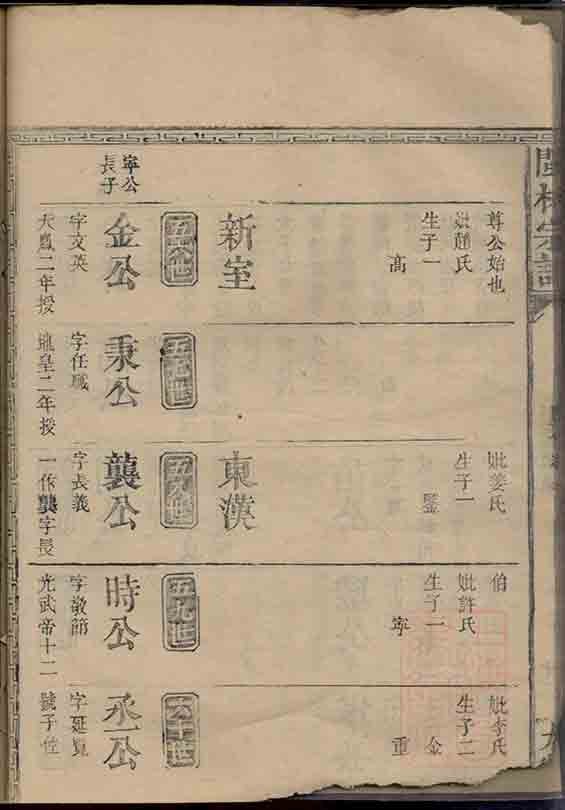 尊公始也
妣趙氏
生子一
高
新室
五六世
寧公
長子
金公
字文英
天鳳二年授
五七世
秉公
字任職
地皇二年授
妣姜氏
生子一
鑒
東漢
五八世
襲公
字長義
一作龔字長
伯
妣許氏
生子一
寧
五九世
時公
字敬節
光武帝十二
妣李氏
生子二
金
重
六十世
丞公
字延覽
號子佐